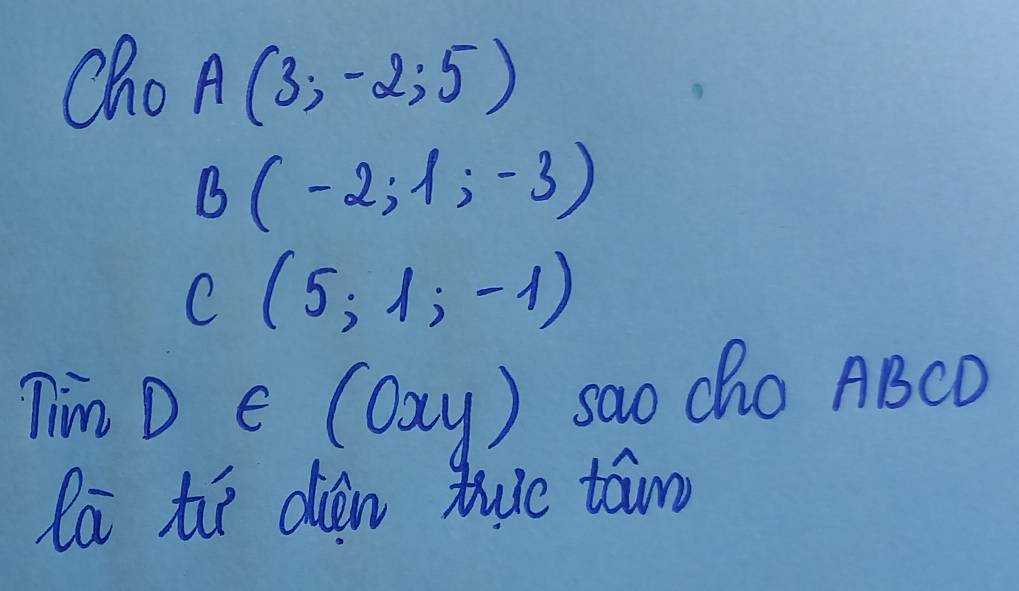 Cho A (3; -2; 5)
B ( -2; 1; -3)
C (5; 1; -1)
Tìm D ∈ (Oxy) sao cho ABCD
là tứ diện trực tâm